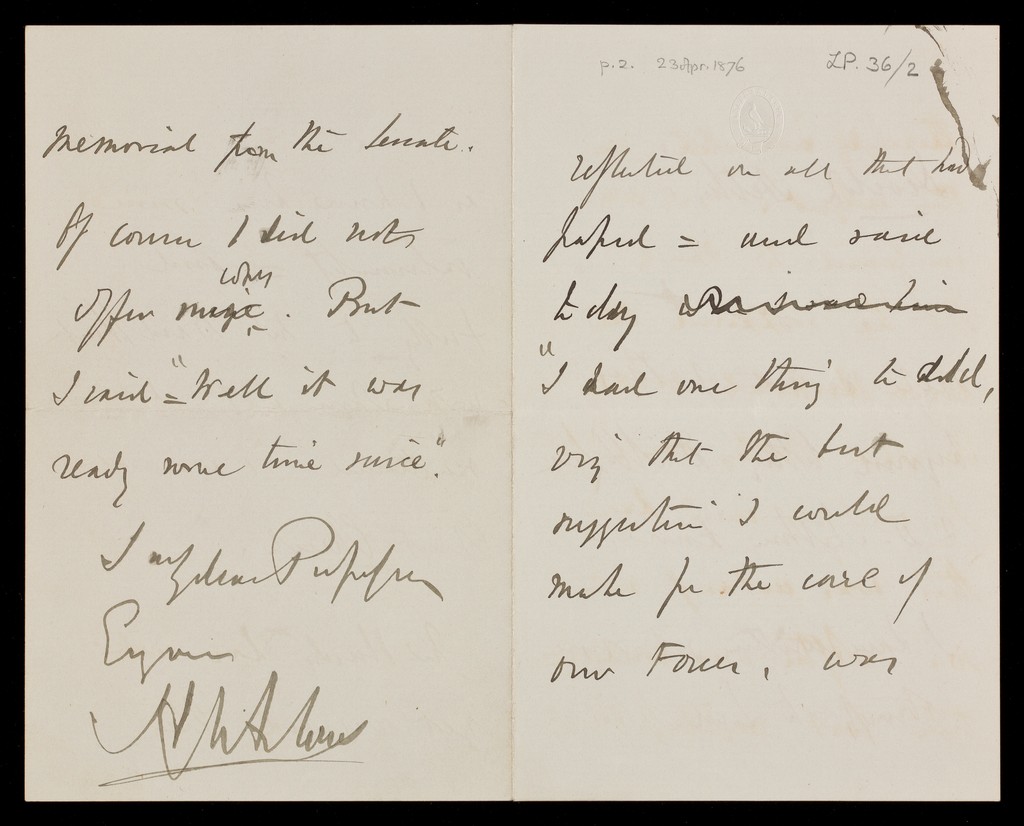 memorial from the Senate.
Of course I did not
copy
offer mine. But
I said = "Well it was
ready some time since".
I my dear Professor
Ever yours
p.2. 23 Apr. 1876 LP. 36/2
reflected on all that had
passed = and said
to day
"I had one thing to add,
viz that the best
suggestion I could
make for the care of
our Forces, was